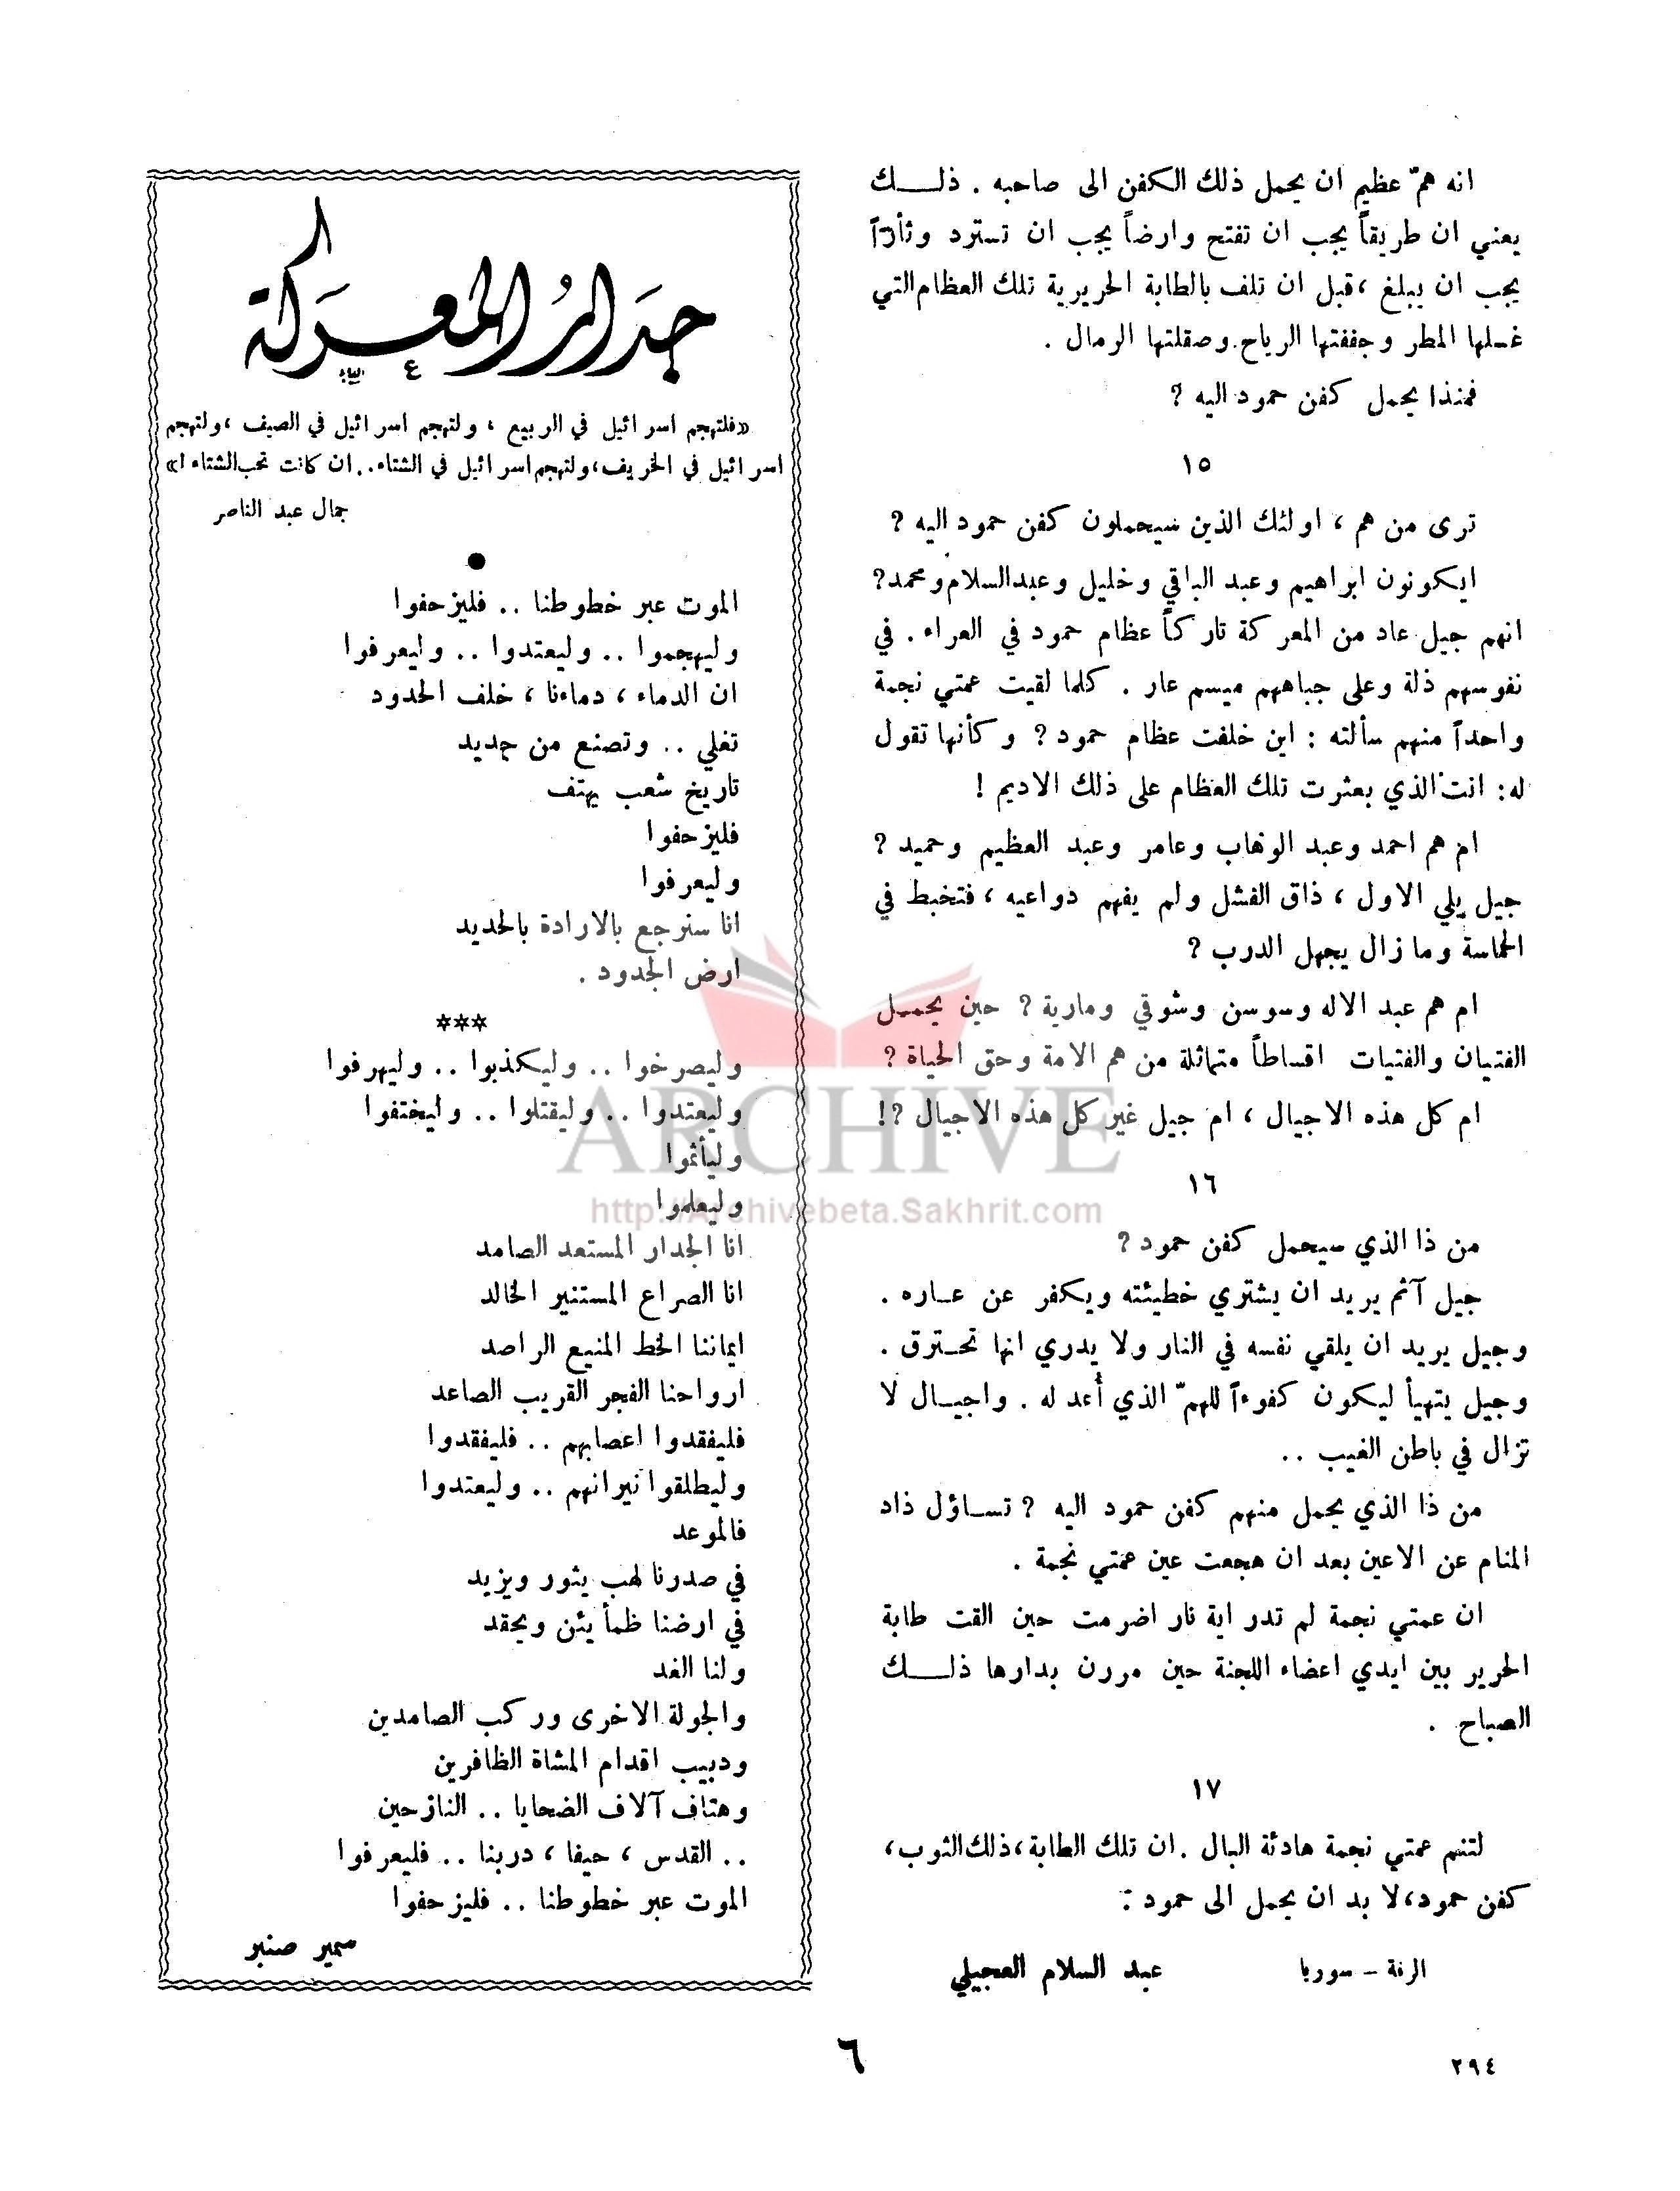 انه همّ عظيم ان يحمل ذلك الكفن الى صاحبه . ذلـــك
يعني ان طريقاً يجب ان تفتح وارضاً يجب ان تسترد وثأراً
يجب ان يبلغ ، قبل ان تلف بالطابة الحريرية تلك العظام التي
غسلها المطر وجففتها الرياح وصقلتها الرمال .
فمنذا يحمل كفن حمود اليه ؟
١٥
ترى من هم ، اولئك الذين سيحملون كفن حمود اليه ؟
ايكونون ابراهيم وعبد الباقي وخليل وعبدالسلام ومحمد؟
انهم جيل عاد من المعركة تاركاً عظام حمود في العراء . في
نفوسهم ذلة وعلى جباههم ميسم عار . كلما لقيت عمتي نجمة
واحداً منهم سألته : اين خلفت عظام حمود ؟ وكأنها تقول
له: انت الذي بعثرت تلك العظام على ذلك الاديم !
ام هم احمد وعبد الوهاب وعامر وعبد العظيم وحميد ؟
جيل يلي الاول ، ذاق الفشل ولم يفهم دواعيه ، فتخبط في
الحماسة وما زال يجهل الدرب ؟
ام هم عبد الاله وسوسن وشوقي ومارية ؟ حين يحمـل
الفتيان والفتيات اقساطاً متماثلة من هم الامة وحق الحياة ؟
ام كل هذه الاجيال ، ام جيل غير كل هذه الاجيال ؟!
١٦
من ذا الذي سيحمل كفن حمود ؟
جيل آثم يريد ان يشتري خطيئته ويكفر عن عـاره .
وجيل يريد ان يلقي نفسه في النار ولا يدري انها تحـترق .
وجيل يتهيأ ليكون كفوءاً للهمّ الذي أُعد له . واجيـال لا
تزال في باطن الغيب ..
من ذا الذي يحمل منهم كفن حمود اليه ؟ تسـاؤل ذاد
المنام عن الاعين بعد ان هجعت عين عمتي نجمة .
ان عمتي نجمة لم تدر اية نار اضرمت حين القت طابة
الحرير بين ايدي اعضاء اللجنة حين مررن بدارها ذلـــك
الصباح .
١٧
لتنم عمتي نجمة هادئة البال . ان تلك الطابة ، ذلك الثوب ،
كفن حمود ، لا بد ان يحمل الى حمود :
الرقة - سوريا عبد السلام العجيلي
جدار المعركة
«فلتهجم اسرائيل في الربيع ، ولتهجم اسرائيل في الصيف ، ولتهجم
اسرائيل في الخريف ، ولتهجم اسرائيل في الشتاء .. ان كانت تحب الشتاء !»
جمال عبد الناصر
●
الموت عبر خطوطنا .. فليزحفوا
وليهجموا .. وليعتدوا .. وليعرفوا
ان الدماء ، دماءنا ، خلف الحدود
تغلي .. وتصنع من جديد
تاريخ شعب يهتف
فليزحفوا
وليعرفوا
انا سنرجع بالارادة بالحديد
ارض الجدود .
***
وليصرخوا .. وليكذبوا .. وليهرفوا
وليعتدوا .. وليقتلوا .. وليختفوا
وليأثموا
وليعلموا
انا الجدار المستعد الصامد
انا الصراع المستنير الخالد
ايماننا الخط المنيع الراصد
ارواحنا الفجر القريب الصاعد
فليفقدوا اعصابهم .. فليفقدوا
وليطلقوا نيرانهم .. وليعتدوا
فالموعد
في صدرنا لهب يثور ويزيد
في ارضنا ظمأ يئن ويحقد
ولنا الغد
والجولة الاخرى وركب الصامدين
ودبيب اقدام المشاة الظافرين
وهتاف آلاف الضحايا .. النازحين
.. القدس ، حيفا ، دربنا .. فليعرفوا
الموت عبر خطوطنا .. فليزحفوا
سمير صنبر
ARCHIVE
http://Archivebeta.Sakhrit.com
٦
٢٩٤